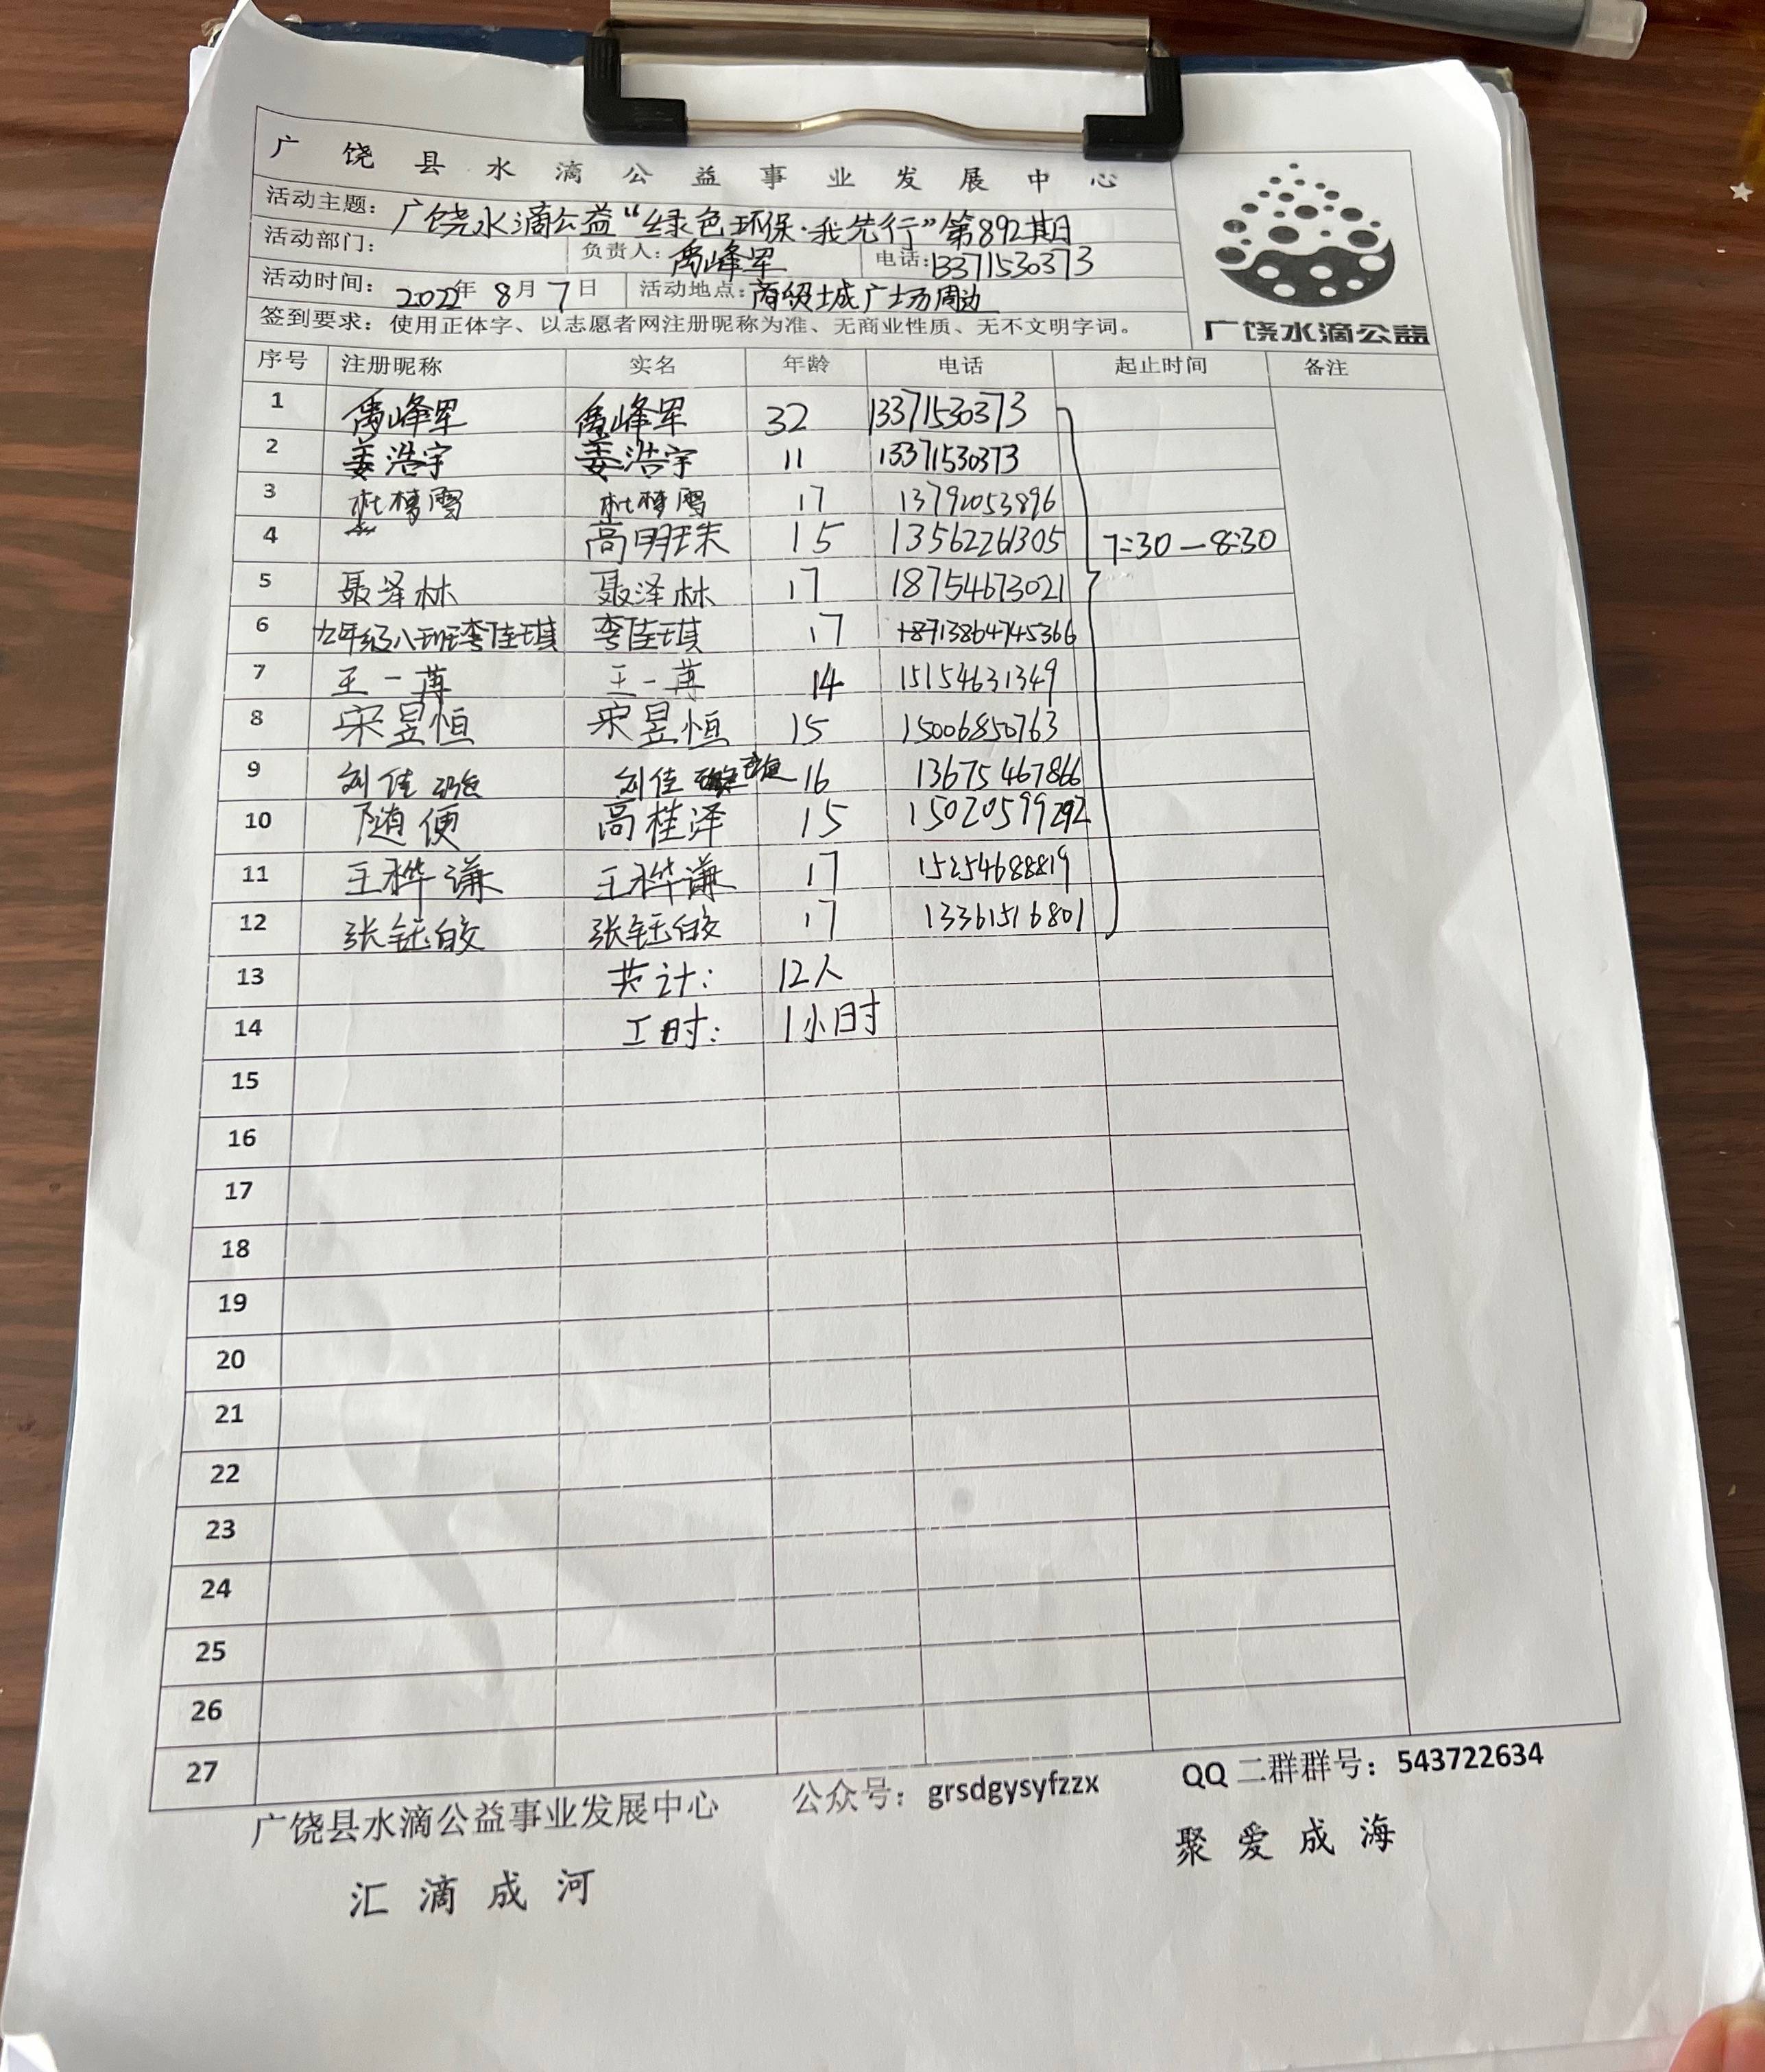 广饶县水滴公益事业发展中心
活动主题：广饶水滴公益“绿色环保·我先行”第892期日
活动部门： 负责人：禹峰军 电话：13371530373
活动时间：2022年8月7日 活动地点：商贸城广场周边
签到要求：使用正体字、以志愿者网注册昵称为准、无商业性质、无不文明字词。
广饶水滴公益
序号 注册昵称 实名 年龄 电话 起止时间 备注
1 禹峰军 禹峰军 32 13371530373
2 姜浩宇 姜浩宇 11 13371530373
3 杜梦雪 杜梦雪 17 13792053896
4 高明珠 15 13562261305 7:30—8:30
5 聂泽林 聂泽林 17 18754673021
6 九年级八班李佳琪 李佳琪 17 +8713864745366
7 王一 王一 14 15154631349
8 宋昱恒 宋昱恒 15 15006850763
9 刘佳 刘佳 16 13675467866
10 随便 高桂泽 15 15020599292
11 王桦谦 王桦谦 17 15254688819
12 张钰皎 张钰皎 17 13361516801
13 共计： 12人
14 工时： 1小时
15
16
17
18
19
20
21
22
23
24
25
26
27
广饶县水滴公益事业发展中心 公众号：grsdgysyfzzx QQ二群群号：543722634
汇滴成河 聚爱成海